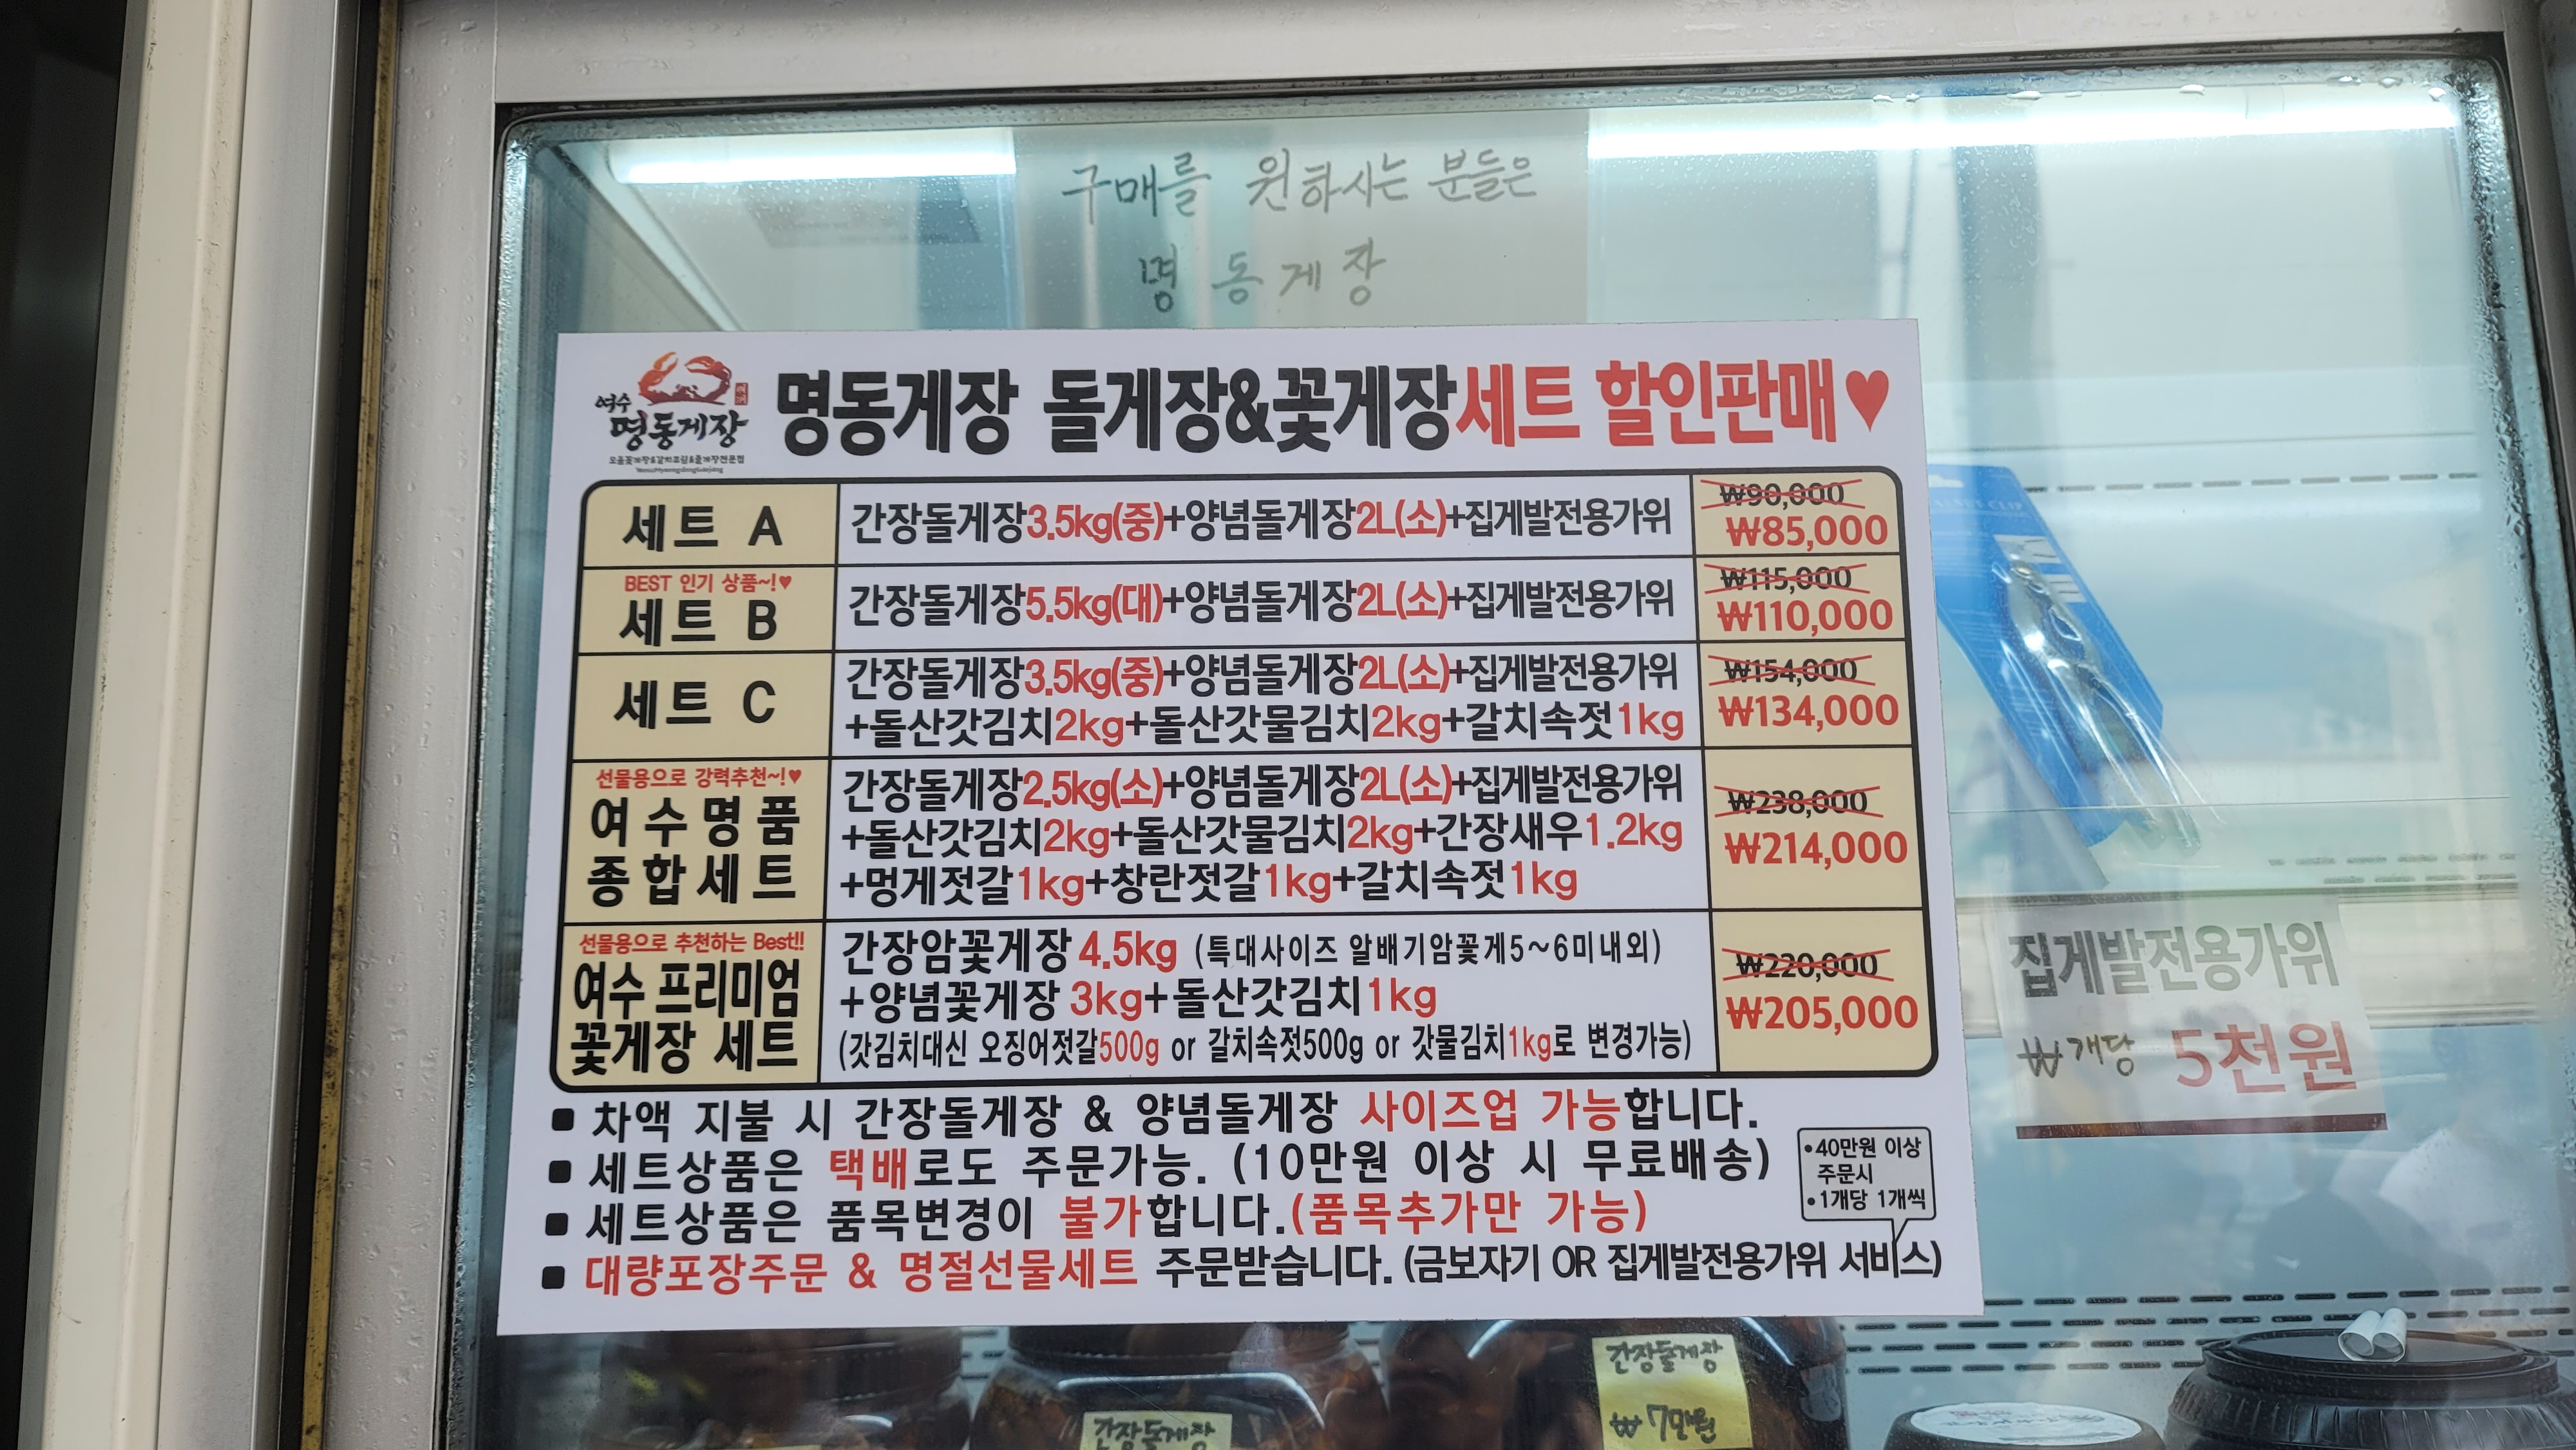 구매를 원하시는 분들은
명동게장
여수
명동게장
명동게장 돌게장&꽃게장세트 할인판매♥
세트 A
간장돌게장3.5kg(중)+양념돌게장2L(소)+집게발전용가위
₩90,000
₩85,000
BEST 인기 상품~!♥
세트 B
간장돌게장5.5kg(대)+양념돌게장2L(소)+집게발전용가위
₩115,000
₩110,000
세트 C
간장돌게장3.5kg(중)+양념돌게장2L(소)+집게발전용가위
+돌산갓김치2kg+돌산갓물김치2kg+갈치속젓1kg
₩154,000
₩134,000
선물용으로 강력추천~!♥
여수명품
종합세트
간장돌게장2.5kg(소)+양념돌게장2L(소)+집게발전용가위
+돌산갓김치2kg+돌산갓물김치2kg+간장새우1.2kg
+멍게젓갈1kg+창란젓갈1kg+갈치속젓1kg
₩238,000
₩214,000
선물용으로 추천하는 Best!!
여수 프리미엄
꽃게장 세트
간장암꽃게장 4.5kg (특대사이즈 알배기암꽃게5~6미내외)
+양념꽃게장 3kg+돌산갓김치1kg
(갓김치대신 오징어젓갈500g or 갈치속젓500g or 갓물김치1kg로 변경가능)
₩220,000
₩205,000
■ 차액 지불 시 간장돌게장 & 양념돌게장 사이즈업 가능합니다.
■ 세트상품은 택배로도 주문가능. (10만원 이상 시 무료배송)
■ 세트상품은 품목변경이 불가합니다.(품목추가만 가능)
•40만원 이상
주문시
•1개당 1개씩
■ 대량포장주문 & 명절선물세트 주문받습니다. (금보자기 OR 집게발전용가위 서비스)
집게발전용가위
₩개당 5천원
간장돌게장
₩7만원
간장돌게장